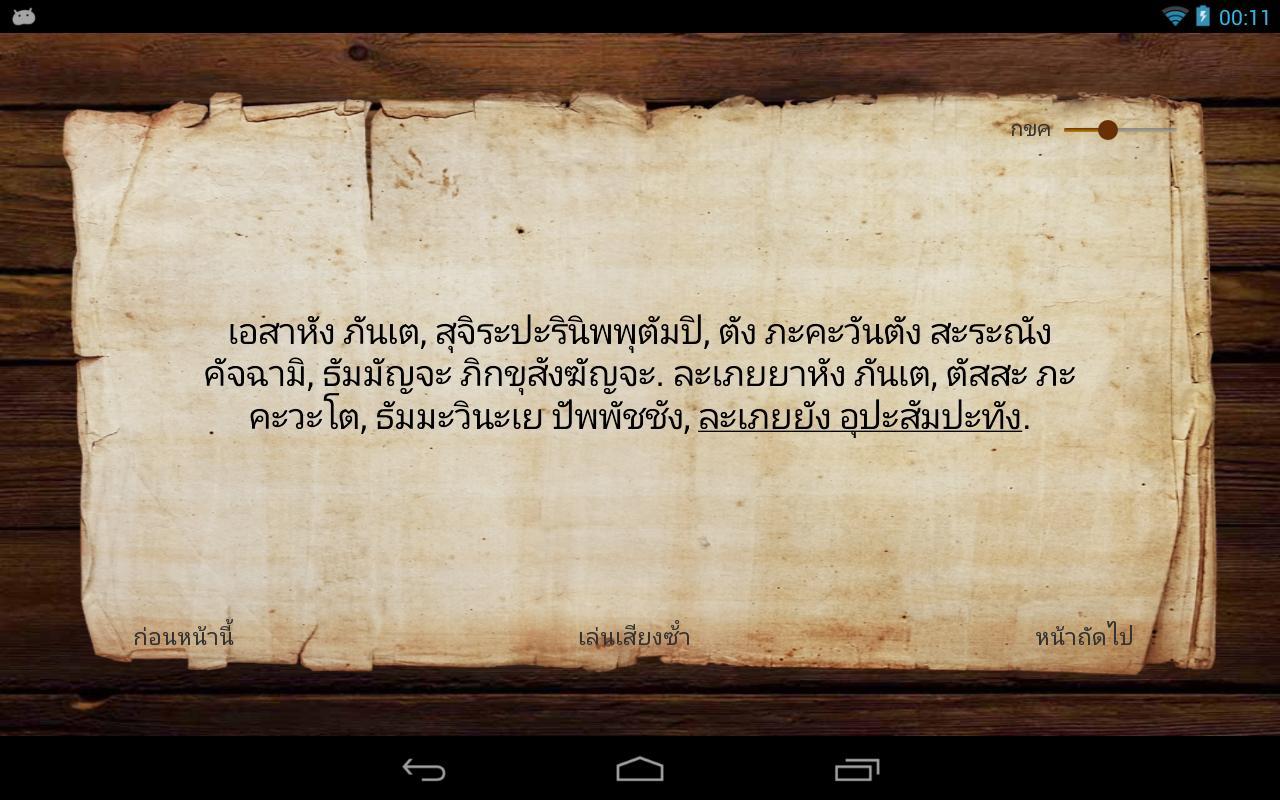 00:11
กขค
เอสาหัง ภันเต, สุจิระปะรินิพพุตัมปิ, ตัง ภะคะวันตัง สะระณัง
คัจฉามิ, ธัมมัญจะ ภิกขุสังฆัญจะ. ละเภยยาหัง ภันเต, ตัสสะ ภะ
คะวะโต, ธัมมะวินะเย ปัพพัชชัง, ละเภยยัง อุปะสัมปะทัง.
ก่อนหน้านี้
เล่นเสียงซ้ำ
หน้าถัดไป